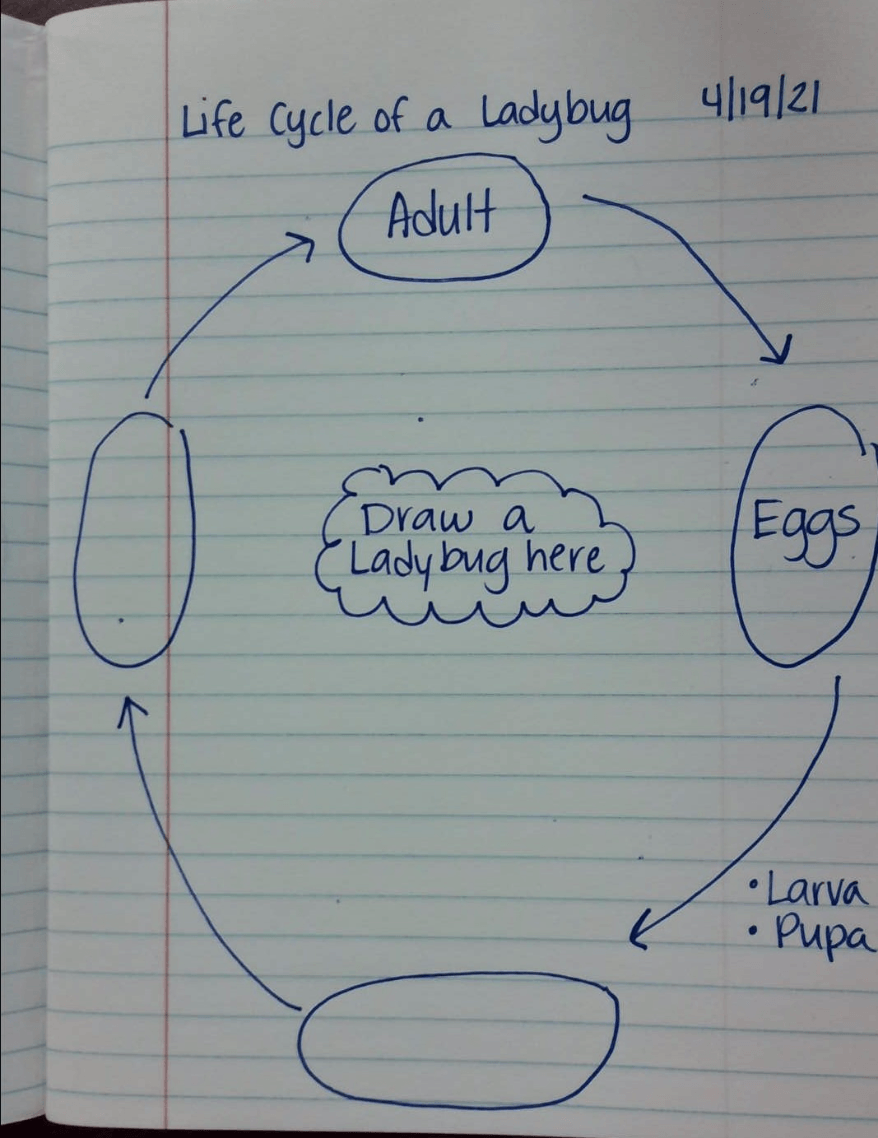 Life Cycle of a Ladybug 4/19/21
Adult
Eggs
Draw a
Ladybug here
• Larva
• Pupa